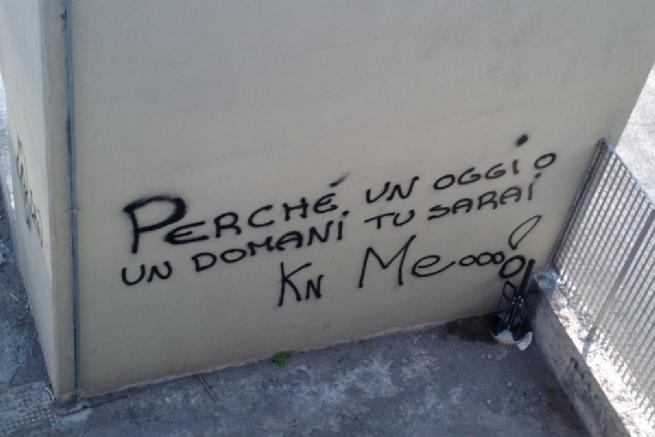 PERCHÉ UN OGGI O
UN DOMANI TU SARAI
KN Me...!